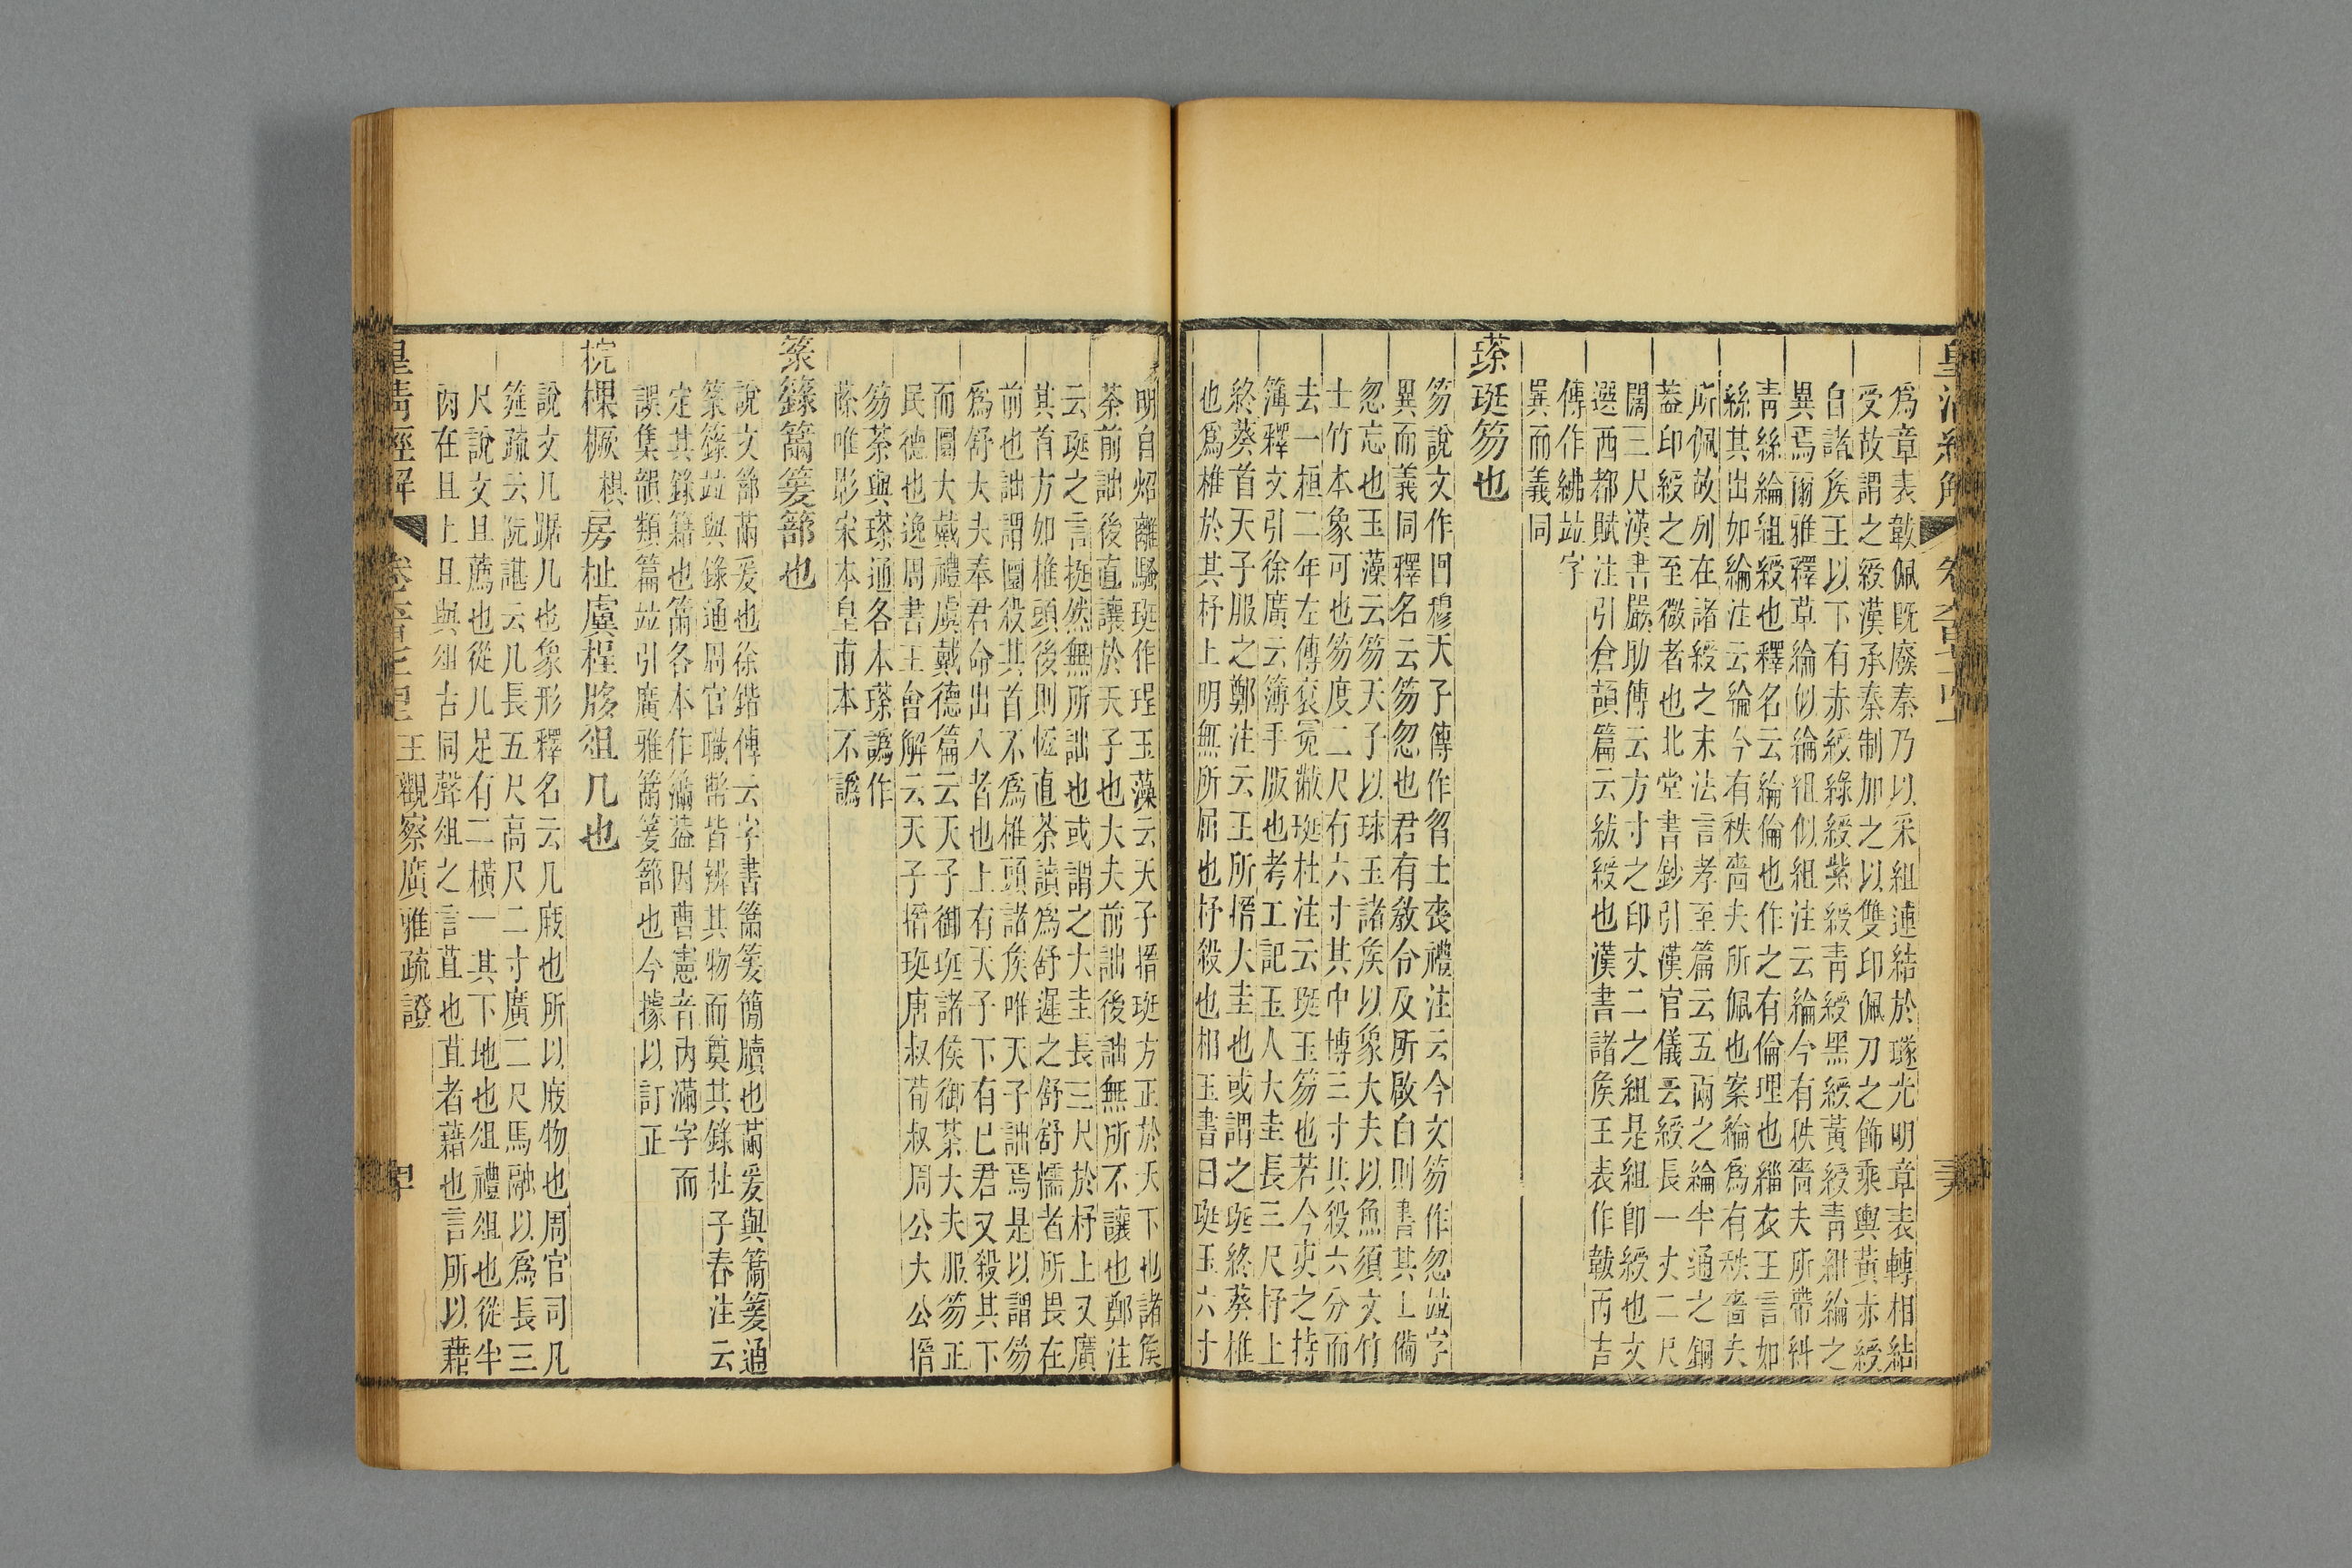 爲章表韍佩既廢秦乃以采組連結於璲光明章表轉相結
受故謂之綬漢承秦制加之以雙印佩刀之飾乘輿黃赤綬
自諸矦王以下有赤綬綠綬紫綬靑綬黑綬黃綬靑紺綸之
異焉爾雅釋草綸似綸組似組注云綸今有秩嗇夫所帶糾
靑絲綸組綬也釋名云綸倫也作之有倫理也緇衣王言如
絲其出如綸注云綸今有秩嗇夫所佩也案綸爲有秩嗇夫
所佩故列在諸綬之末法言孝至篇云五兩之綸半通之銅
蓋印綬之至微者也北堂書鈔引漢官儀云綬長一丈二尺
闊三尺漢書嚴助傳云方寸之印丈二之組是組卽綬也文
選西都賦注引倉頡篇云紱綬也漢書諸矦王表作韍丙吉
傳作紼竝字
異而義同
瑹珽笏也
笏說文作曶穆天子傳作曶士喪禮注云今文笏作忽竝字
異而義同釋名云笏忽也君有敎令及所啟白則書其上備
忽忘也玉藻云笏天子以球玉諸矦以象大夫以魚須文竹
士竹本象可也笏度二尺有六寸其中博三寸其殺六分而
去一桓二年左傳袞冕黻珽杜注云珽玉笏也若今吏之持
簿釋文引徐廣云簿手版也考工記玉人大圭長三尺杼上
終葵首天子服之鄭注云王所搢大圭也或謂之珽終葵椎
也爲椎於其杼上明無所屈也杼殺也相玉書曰珽玉六寸
明自炤離騷珽作珵玉藻云天子搢珽方正於天下也諸矦
荼前詘後直讓於天子也大夫前詘後詘無所不讓也鄭注
云珽之言挺然無所詘也或謂之大圭長三尺於杼上又廣
其首方如椎頭後則恆直荼讀爲舒遲之舒舒懦者所畏在
前也詘謂圜殺其首不爲椎頭諸矦唯天子詘焉是以謂笏
爲舒大夫奉君命出入者也上有天子下有己君又殺其下
而圜大戴禮虞戴德篇云天子御珽諸侯御荼大夫服笏正
民德也逸周書王會解云天子搢珽唐叔荀叔周公大公搢
笏荼與瑹通各本瑹譌作
蒣唯影宋本皇甫本不譌
䈞籙籥篗篰也
說文篰㒼爰也徐鍇傳云字書籥篗簡牘也㒼爰與籥篗通
䈞籙竝與錄通周官職幣皆辨其物而奠其錄杜子春注云
定其錄籍也籥各本作滿葢因曹憲音內滿字而
誤集韻類篇竝引廣雅籥篗篰也今據以訂正
梡棵橛棋房杫虡桯㭼俎几也
說文几踞几也象形釋名云几庪也所以庪物也周官司几
筵疏云阮諶云几長五尺高尺二寸廣二尺馬融以爲長三
尺說文且薦也從几足有二橫一其下地也俎禮俎也從半
肉在且上且與俎古同聲俎之言苴也苴者藉也言所以藉
皇淸經解
王觀察廣雅疏證